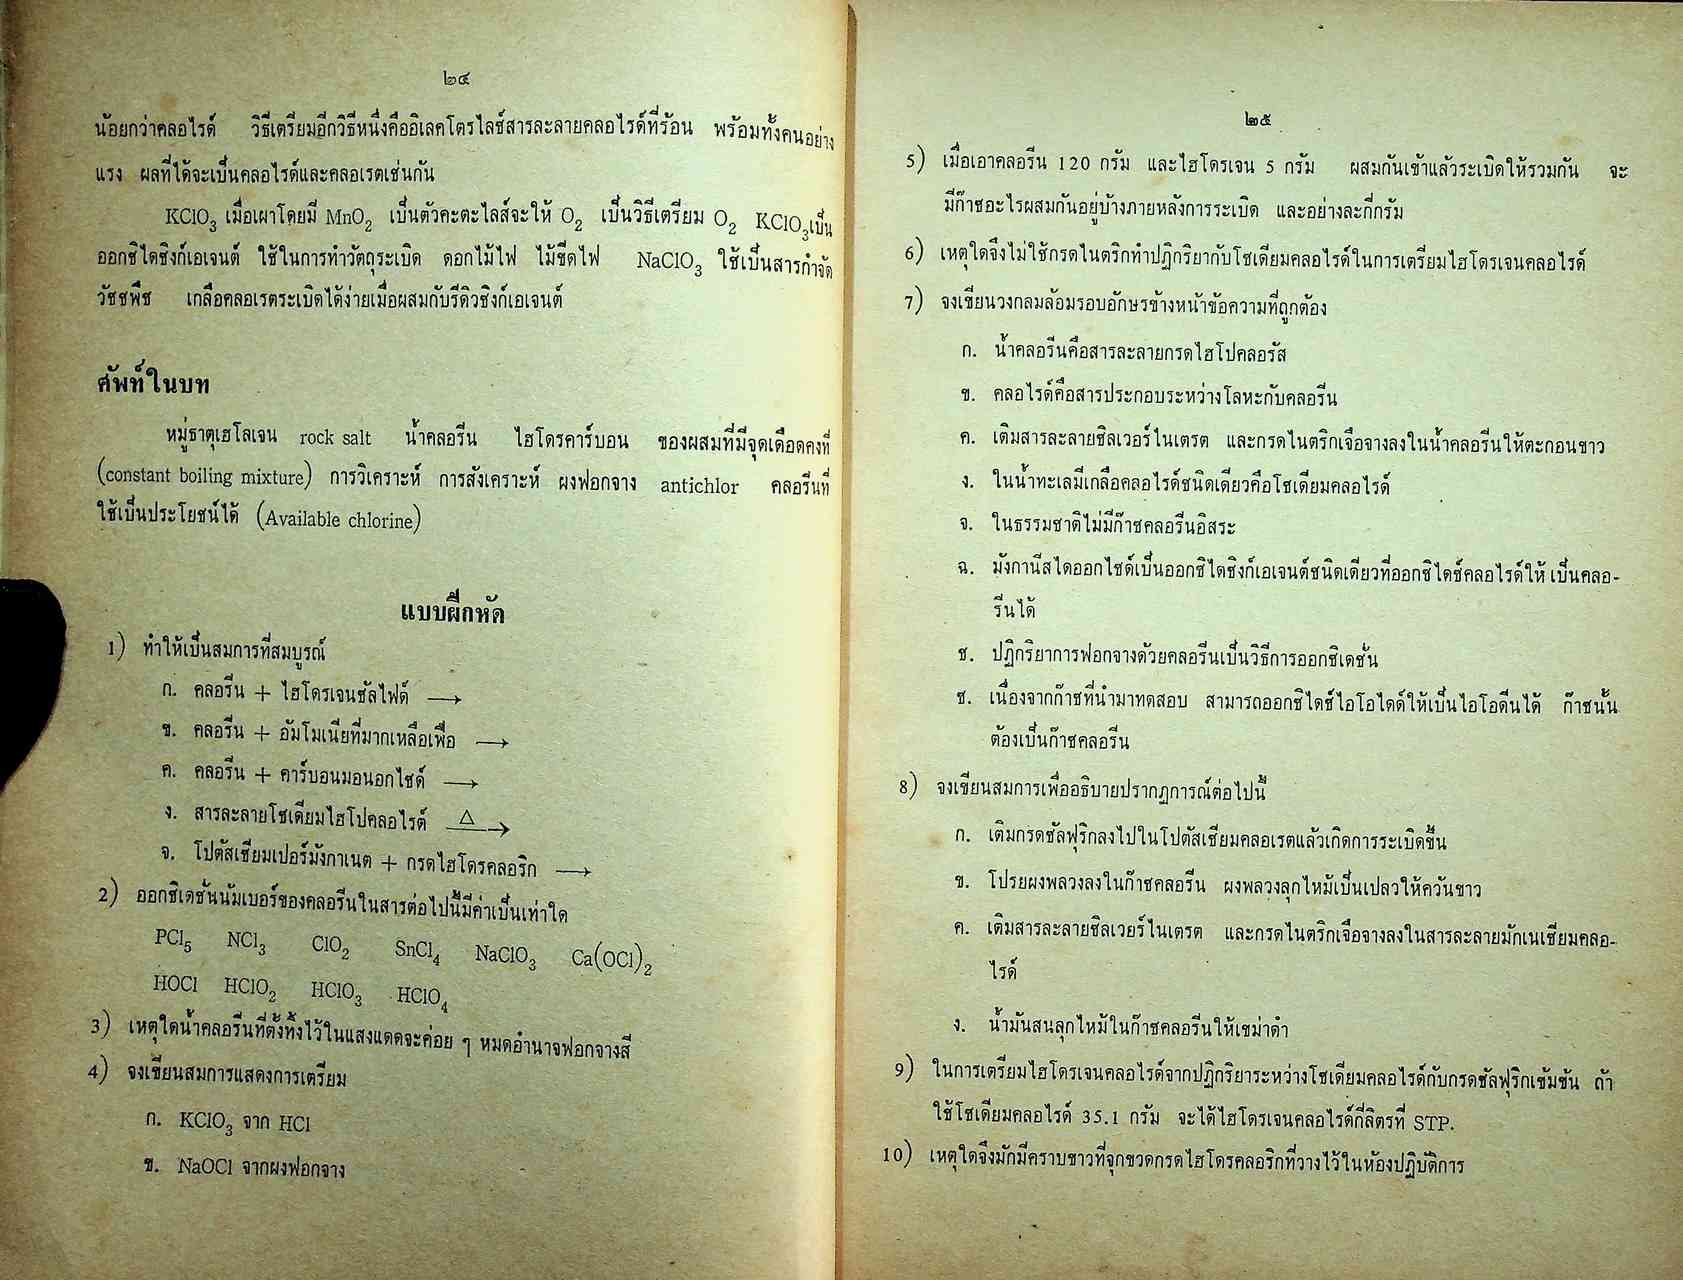 ๒๔
น้อยกว่าคลอไรด์ วิธีเตรียมอีกวิธีหนึ่งคืออิเลคโตรไลซ์สารละลายคลอไรด์ที่ร้อน พร้อมทั้งคนอย่าง
แรง ผลที่ได้จะเป็นคลอไรด์และคลอเรตเช่นกัน
KClO3 เมื่อเผาโดยมี MnO2 เป็นตัวคะตะไลส์จะให้ O2 เป็นวิธีเตรียม O2 KClO3เป็น
ออกซิไดซิงก์เอเจนต์ ใช้ในการทำวัตถุระเบิด ดอกไม้ไฟ ไม้ขีดไฟ NaClO3 ใช้เป็นสารกำจัด
วัชชพืช เกลือคลอเรตระเบิดได้ง่ายเมื่อผสมกับรีดิวซิงก์เอเจนต์
ศัพท์ในบท
หมู่ธาตุเฮโลเจน rock salt น้ำคลอรีน ไฮโดรคาร์บอน ของผสมที่มีจุดเดือดคงที่
(constant boiling mixture) การวิเคราะห์ การสังเคราะห์ ผงฟอกจาง antichlor คลอรีนที่
ใช้เป็นประโยชน์ได้ (Available chlorine)
แบบฝึกหัด
1) ทำให้เป็นสมการที่สมบูรณ์
ก. คลอรีน + ไฮโดรเจนซัลไฟด์ ⟶
ข. คลอรีน + อัมโมเนียที่มากเหลือเฟือ ⟶
ค. คลอรีน + คาร์บอนมอนอกไซด์ ⟶
ง. สารละลายโซเดียมไฮโปคลอไรต์ △⟶
จ. โปตัสเซียมเปอร์มังกาเนต + กรดไฮโดรคลอริก ⟶
2) ออกซิเดชั่นนัมเบอร์ของคลอรีนในสารต่อไปนี้มีค่าเป็นเท่าใด
PCl5 NCl3 ClO2 SnCl4 NaClO3 Ca(OCl)2
HOCl HClO2 HClO3 HClO4
3) เหตุใดน้ำคลอรีนที่ตั้งทิ้งไว้ในแสงแดดจะค่อย ๆ หมดอำนาจฟอกจางสี
4) จงเขียนสมการแสดงการเตรียม
ก. KClO3 จาก HCl
ข. NaOCl จากผงฟอกจาง
๒๕
5) เมื่อเอาคลอรีน 120 กรัม และไฮโดรเจน 5 กรัม ผสมกันเข้าแล้วระเบิดให้รวมกัน จะ
มีก๊าซอะไรผสมกันอยู่บ้างภายหลังการระเบิด และอย่างละกี่กรัม
6) เหตุใดจึงไม่ใช้กรดไนตริกทำปฏิกริยากับโซเดียมคลอไรด์ในการเตรียมไฮโดรเจนคลอไรด์
7) จงเขียนวงกลมล้อมรอบอักษรข้างหน้าข้อความที่ถูกต้อง
ก. น้ำคลอรีนคือสารละลายกรดไฮโปคลอรัส
ข. คลอไรด์คือสารประกอบระหว่างโลหะกับคลอรีน
ค. เติมสารละลายซิลเวอร์ไนเตรต และกรดไนตริกเจือจางลงในน้ำคลอรีนให้ตะกอนขาว
ง. ในน้ำทะเลมีเกลือคลอไรด์ชนิดเดียวคือโซเดียมคลอไรด์
จ. ในธรรมชาติไม่มีก๊าซคลอรีนอิสระ
ฉ. มังกานีสไดออกไซด์เป็นออกซิไดซิงก์เอเจนต์ชนิดเดียวที่ออกซิไดซ์คลอไรด์ให้ เป็นคลอ-
รีนได้
ช. ปฏิกริยาการฟอกจางด้วยคลอรีนเป็นวิธีการออกซิเดชั่น
ซ. เนื่องจากก๊าซที่นำมาทดสอบ สามารถออกซิไดซ์ไอโอไดด์ให้เป็นไอโอดีนได้ ก๊าซนั้น
ต้องเป็นก๊าซคลอรีน
8) จงเขียนสมการเพื่ออธิบายปรากฏการณ์ต่อไปนี้
ก. เติมกรดซัลฟุริกลงไปในโปตัสเซียมคลอเรตแล้วเกิดการระเบิดขึ้น
ข. โปรยผงพลวงลงในก๊าซคลอรีน ผงพลวงลุกไหม้เป็นเปลวให้ควันขาว
ค. เติมสารละลายซิลเวอร์ไนเตรต และกรดไนตริกเจือจางลงในสารละลายมักเนเซียมคลอ-
ไรด์
ง. น้ำมันสนลุกไหม้ในก๊าซคลอรีนให้เขม่าดำ
9) ในการเตรียมไฮโดรเจนคลอไรด์จากปฏิกริยาระหว่างโซเดียมคลอไรด์กับกรดซัลฟุริกเข้มข้น ถ้า
ใช้โซเดียมคลอไรด์ 35.1 กรัม จะได้ไฮโดรเจนคลอไรด์กี่ลิตรที่ STP.
10) เหตุใดจึงมักมีคราบขาวที่จุกขวดกรดไฮโดรคลอริกที่วางไว้ในห้องปฏิบัติการ